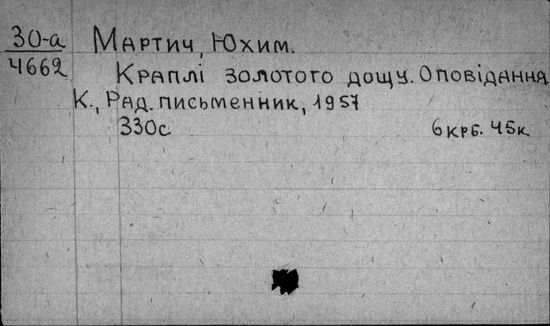 30-а Мартич, Юхим.
4662 Краплі золотого дощу. Оповідання
К., Рад. письменник, 1957
330с 6 крб. 45к